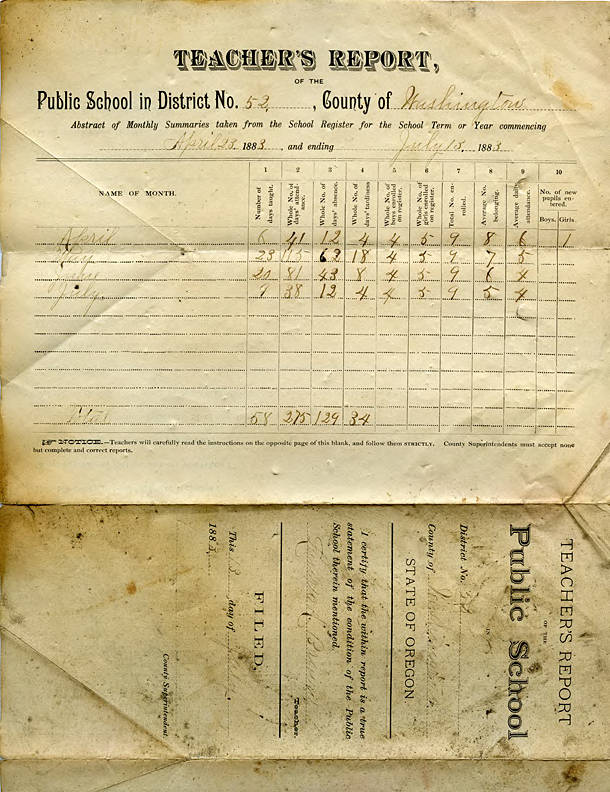 TEACHER'S REPORT,
OF THE
Public School in District No. 52, County of Washington
Abstract of Monthly Summaries taken from the School Register for the School Term or Year commencing
April 23 1883, and ending July 13 1883
NAME OF MONTH.
1 2 3 4 5 6 7 8 9 10
Number of days taught.
Whole No. of days' attendance.
Whole No. of days' absence.
Whole No. of days' tardiness
Whole No. of boys enrolled on register.
Whole No. of girls enrolled on register.
Total No. enrolled.
Average No. belonging.
Average daily attendance.
No. of new pupils entered.
Boys. Girls.
April 6 41 12 4 4 5 9 8 6 1
May 23 115 62 18 4 5 9 7 5
June 20 81 43 8 4 5 9 6 4
July 9 38 12 4 4 5 9 5 4
Total 58 275 129 34
NOTICE.—Teachers will carefully read the instructions on the opposite page of this blank, and follow them STRICTLY. County Superintendents must accept none
but complete and correct reports.
TEACHER'S REPORT
OF THE
Public School
District No. 52
County of
STATE OF OREGON
I certify that the within report is a true
statement of the condition of the Public
School therein mentioned.
Teacher.
FILED,
This day of
188
County Superintendent.